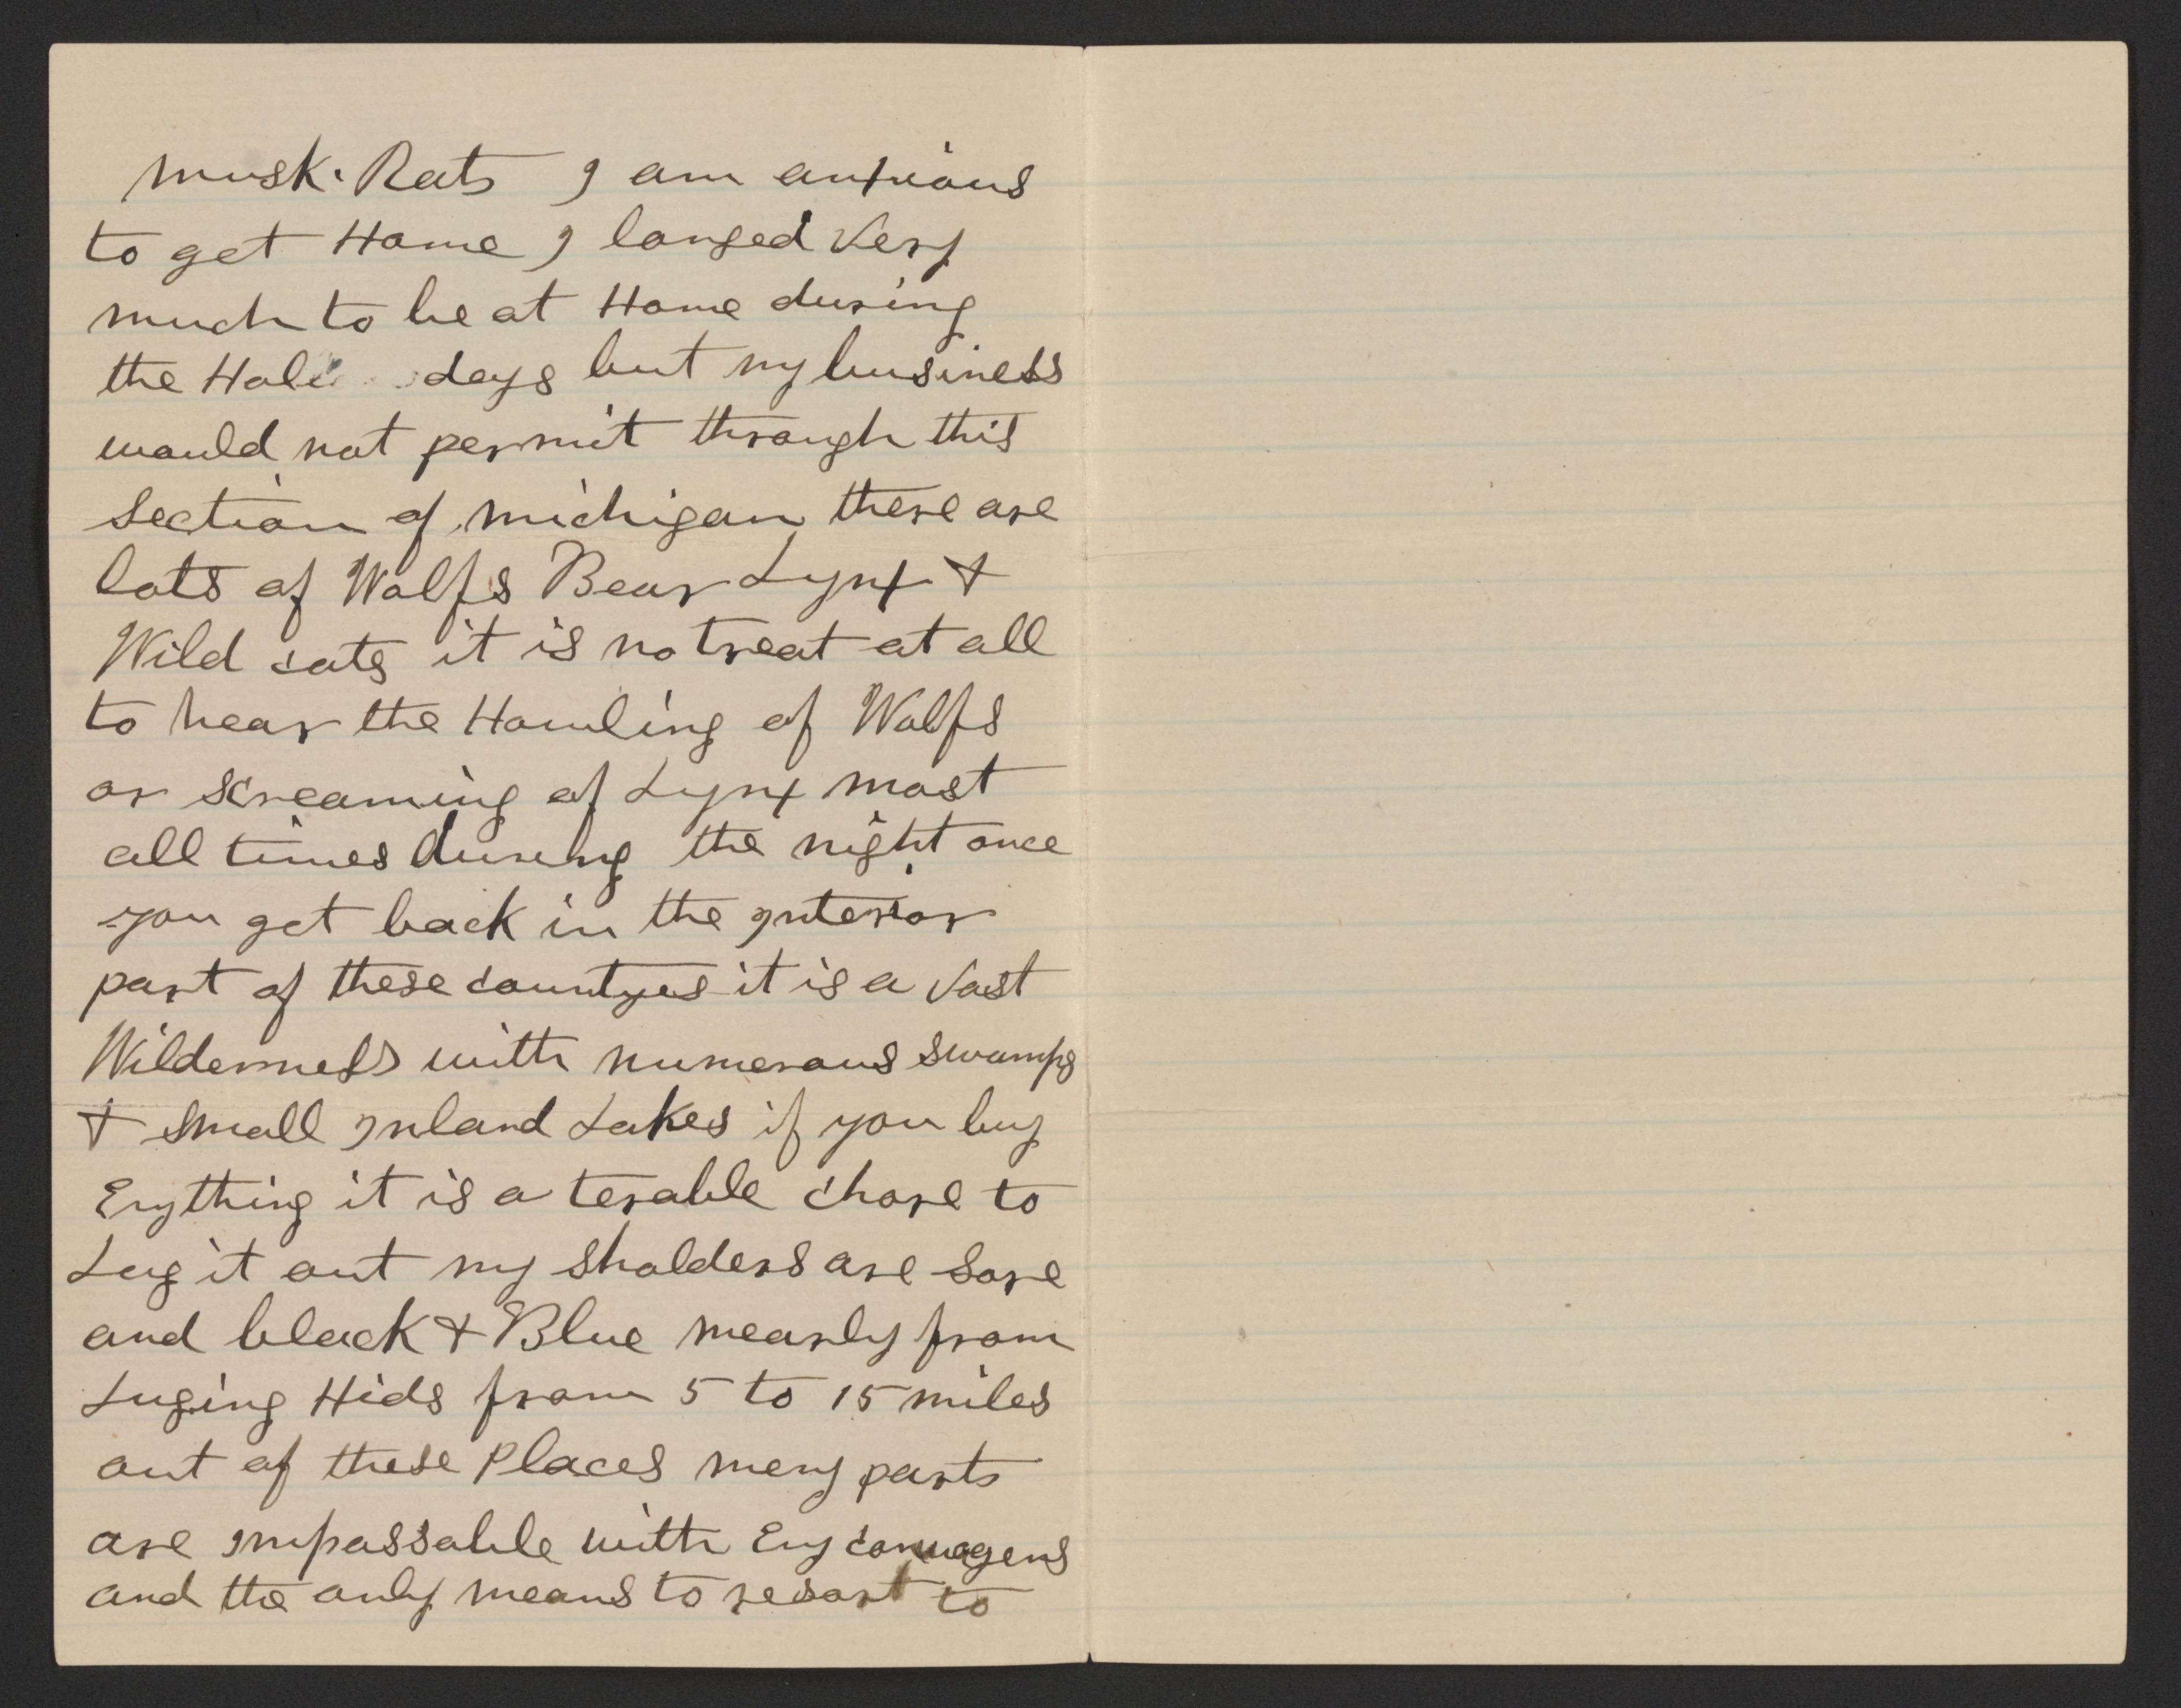 Musk. Rats I am anxious
to get Home I longed Very
much to be at Home during
the Holi days but my business
would not permit through this
Section of Michigan there are
lots of Wolfs Bear Lynx &
Wild cats it is no treat at all
to hear the Howling of Wolfs
or screaming of Lynx most
all times during the night once
you get back in the Interior
part of these countyes it is a Vast
Wilderness with numerous swamps
& Small Inland Lakes if you buy
Enything it is a terable chore to
Lug it out my Sholders are Sore
and black & Blue nearly from
Luging Hids from 5 to 15 miles
out of these Places meny parts
are Impassable with Eny
and the only means to resort to